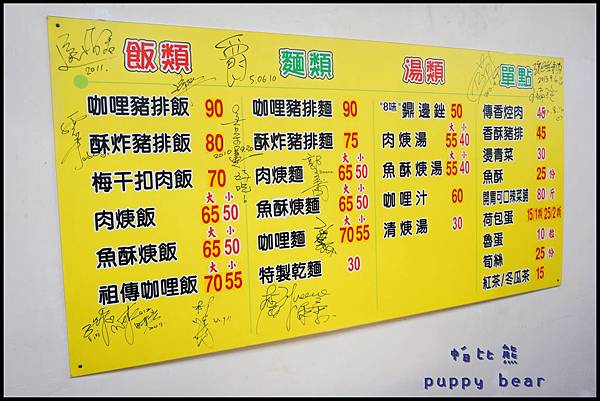 飯類
咖哩豬排飯 90
酥炸豬排飯 80
梅干扣肉飯 70
大 小
肉焿飯 65 50
大 小
魚酥焿飯 65 50
大 小
祖傳咖哩飯 70 55
麵類
咖哩豬排麵 90
酥炸豬排麵 75
大 小
肉焿麵 65 50
大 小
魚酥焿麵 65 50
大 小
咖哩麵 70 55
特製乾麵 30
湯類
"8味"鼎邊銼 50
大 小
肉焿湯 55 40
大 小
魚酥焿湯 55 40
咖哩汁 60
清焿湯 30
單點
傳香焢肉 45
香酥豬排 45
燙青菜 30
魚酥 25份
開胃可口辣菜脯 80斤
荷包蛋 15/1粿 25/2粿
魯蛋 10粒
筍絲 25份
紅茶/冬瓜茶 15
2011.
帕比熊
puppy bear